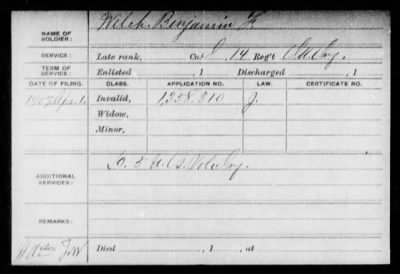 NAME OF SOLDIER: Welch, Benjamin F.
SERVICE: Late rank, Co. 14 Reg't Inf.
TERM OF SERVICE: Enlisted , 1 Discharged , 1
DATE OF FILING. CLASS. APPLICATION NO. LAW. CERTIFICATE NO.
1907 Apr. Invalid, 1358.310 J.
Widow,
Minor,
ADDITIONAL SERVICES: 5 U.S. Vol. Inf.
REMARKS:
Died , 1 , at